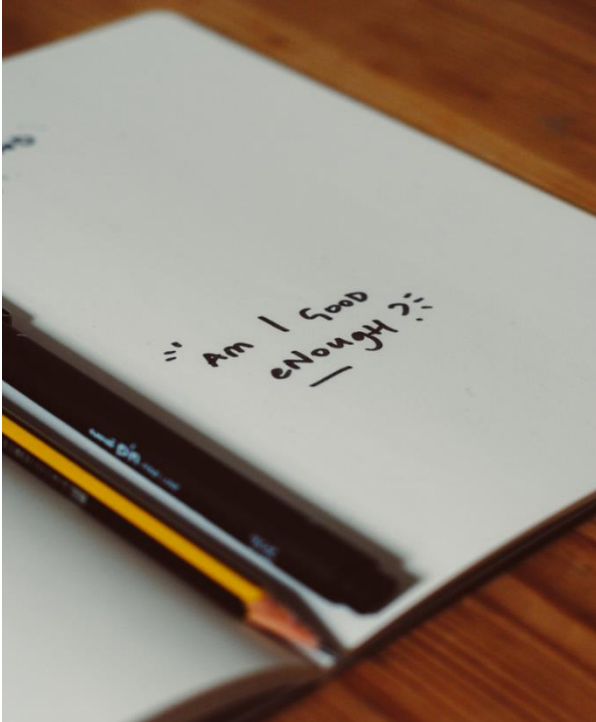 Am I GOOD
eNough?